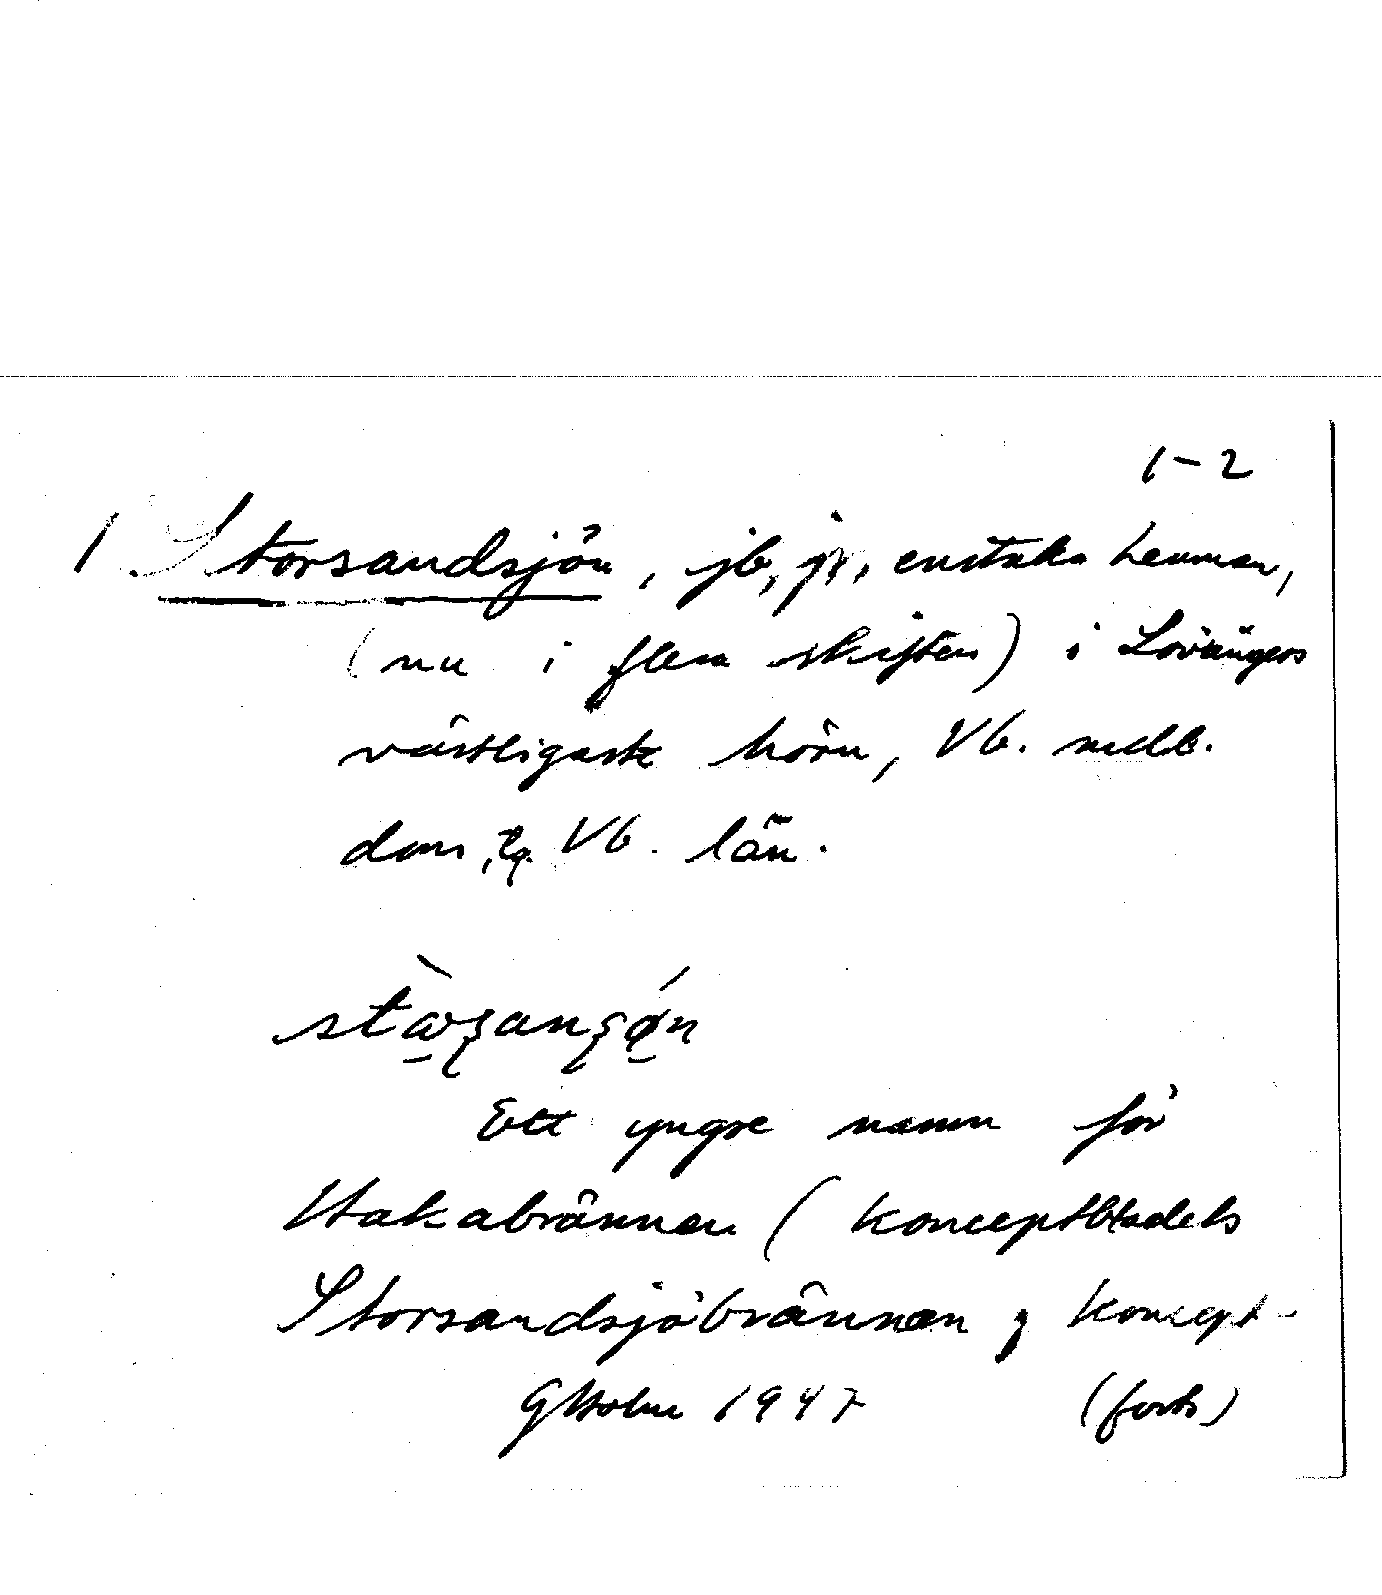 1-2
1 Storsandsjön, jb, jr, enstaka hemman,
(nu i flera skiften) i Lövångers
västligaste hörn, Vb. mell.
doms,
Vb. län.
Ett yngre namn för
Hakabrännan (konceptbladets
Storsandsjöbrännan
koncept-
GHolm 1947 (forts)